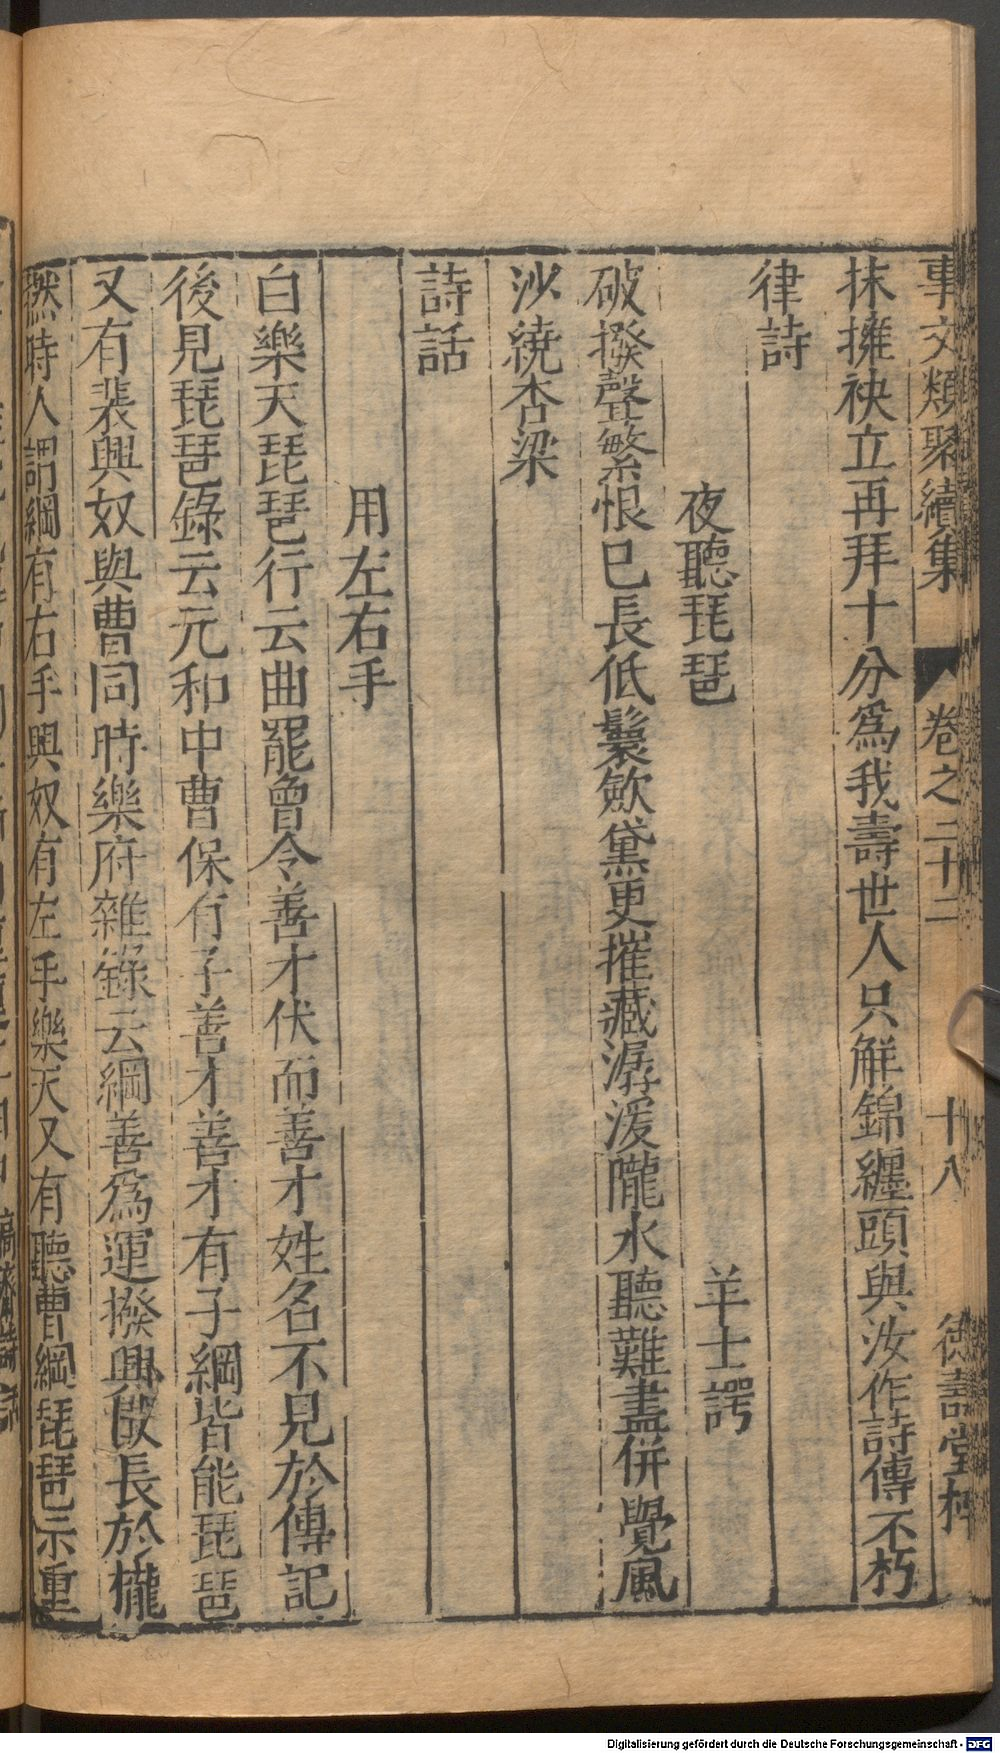 事文類聚續集 卷之二十二 十八 德壽堂梓
抹擁袂立再拜十分爲我壽世人只解錦纏頭與汝作詩傳不朽
律詩
夜聽琵琶 羊士諤
破撥聲繁恨已長低鬟歛黛更摧藏潺湲隴水聽難盡併覺風
沙繞杏梁
詩話
用左右手
白樂天琵琶行云曲罷曾令善才伏而善才姓名不見於傳記
後見琵琶錄云元和中曹保有子善才善才有子綱皆能琵琶
又有裴興奴與曹同時樂府雜錄云綱善爲運撥興奴長於櫳
撚時人謂綱有右手興奴有左手樂天又有聽曹綱琵琶示重
Digitalisierung gefördert durch die Deutsche Forschungsgemeinschaft - DFG